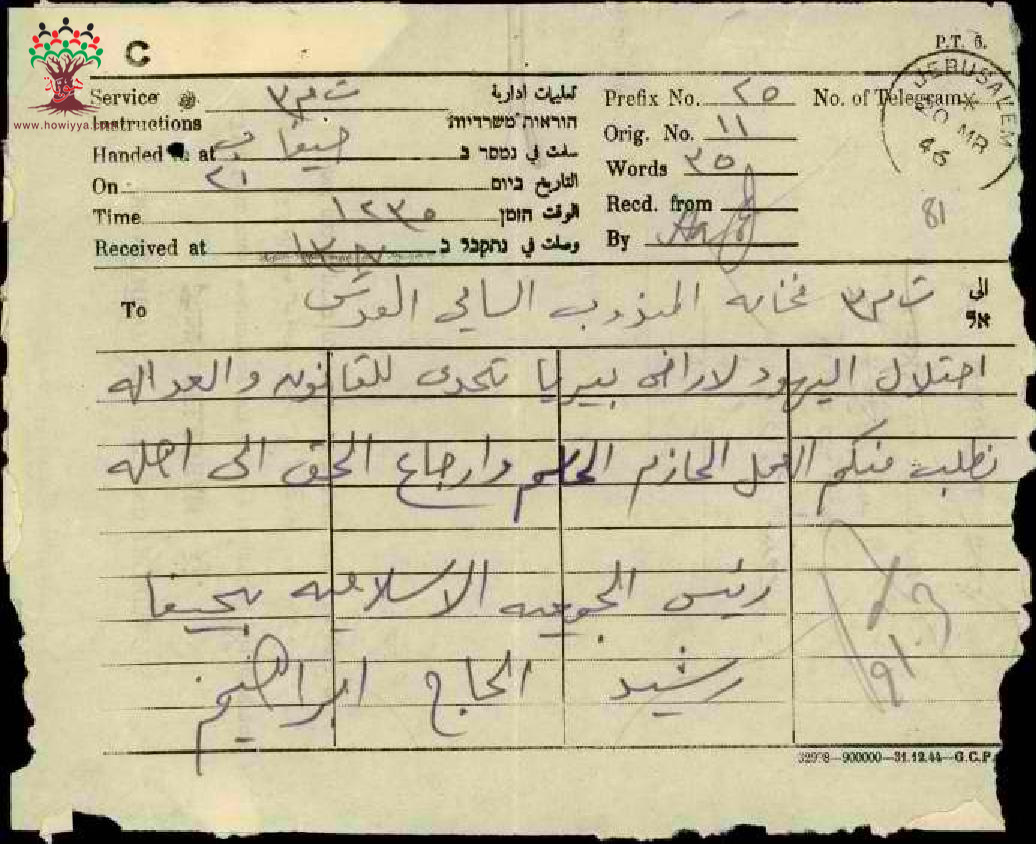 C
P.T. 6.
www.howiyya.
Service ت م ٣ تعليمات ادارية
Instructions הוראות משרדיות
Handed at حيفا سلمت في נמסר ב
On ٢١ التاريخ ביום
Time ١٢٣٥ الوقت הזמן
Received at وصلت في נתקבל ב
Prefix No. ٢٥ No. of Telegram
Orig. No. ١١
Words ٣٥
Recd. from
By
JERUSALEM
20 MR
46
81
To ت م ٣ فخامه المندوب السامي القدس الى אל
احتلال اليهود لاراضي بيريا تحدى للقانون والعداله
نطلب منكم العمل الحازم الحاسم وارجاع الحق الى اهله
رئيس الجمعيه الاسلاميه بحيفا
رشيد الحاج ابراهيم
32978—900000—31.12.44—G.C.P.